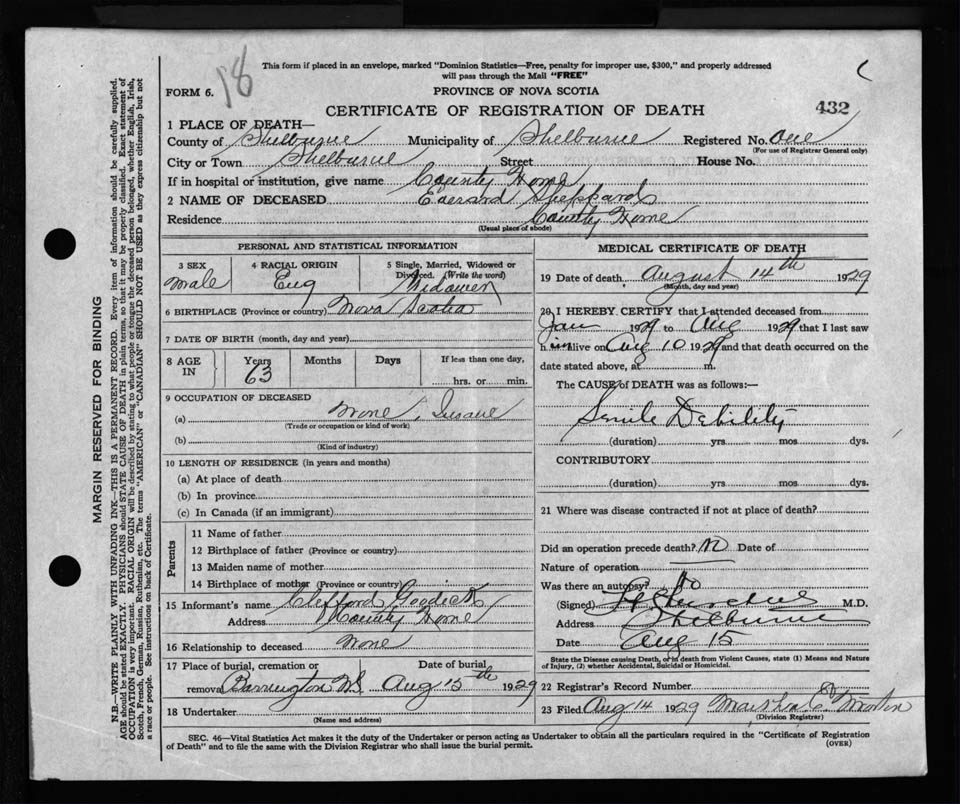 18
This form if placed in an envelope, marked "Dominion Statistics—Free, penalty for improper use, $300," and properly addressed
will pass through the Mail "FREE"
FORM 6.
PROVINCE OF NOVA SCOTIA
CERTIFICATE OF REGISTRATION OF DEATH
432
1 PLACE OF DEATH—
County of Shelburne Municipality of Shelburne Registered No. One
(For use of Registrar General only)
City or Town Shelburne Street House No.
If in hospital or institution, give name County Home
2 NAME OF DECEASED Sheppard
Residence County Home
(Usual place of abode)
MARGIN RESERVED FOR BINDING
N.B.—WRITE PLAINLY WITH UNFADING INK—THIS IS A PERMANENT RECORD. Every item of information should be carefully supplied.
AGE should be stated EXACTLY. PHYSICIANS should STATE CAUSE OF DEATH in plain terms, so that it may be properly classified. Exact statement of
OCCUPATION is very important. RACIAL ORIGIN will be described by stating to what people or tongue the deceased person belonged, whether English, Irish,
Scotch, French, German, Russian, Ruthenian, etc. The terms "AMERICAN" or "CANADIAN" SHOULD NOT BE USED as they express citizenship but not
a race or people. See instructions on back of Certificate.
PERSONAL AND STATISTICAL INFORMATION
3 SEX 4 RACIAL ORIGIN 5 Single, Married, Widowed or
Divorced. (Write the word)
male Eng Widower
6 BIRTHPLACE (Province or country) Nova Scotia
7 DATE OF BIRTH (month, day and year)
8 AGE IN Years Months Days If less than one day,
63 hrs. or min.
9 OCCUPATION OF DECEASED
(a) None, Insane
(Trade or occupation or kind of work)
(b)
(Kind of industry)
10 LENGTH OF RESIDENCE (in years and months)
(a) At place of death
(b) In province
(c) In Canada (if an immigrant)
Parents
11 Name of father
12 Birthplace of father (Province or country)
13 Maiden name of mother
14 Birthplace of mother (Province or country)
15 Informant's name Clifford Goodick
Address County Home
16 Relationship to deceased None
17 Place of burial, cremation or Date of burial
removal Barrington N.S. Aug 15th 1929
18 Undertaker
(Name and address)
MEDICAL CERTIFICATE OF DEATH
19 Date of death August 14th 1929
(Month, day and year)
20 I HEREBY CERTIFY that I attended deceased from
Jan 1929 to Aug 1929 that I last saw
him alive on Aug 10 1929 and that death occurred on the
date stated above, at m.
The CAUSE of DEATH was as follows:—
Senile Debility
(duration) yrs. mos. dys.
CONTRIBUTORY
(duration) yrs. mos. dys.
21 Where was disease contracted if not at place of death?
Did an operation precede death? No Date of
Nature of operation
Was there an autopsy? No
(Signed) M.D.
Address Shelburne
Date Aug 15
State the Disease causing Death, or in death from Violent Causes, state (1) Means and Nature
of Injury, (2) whether Accidental, Suicidal or Homicidal.
22 Registrar's Record Number
23 Filed Aug 14 1929
(Division Registrar)
SEC. 46—Vital Statistics Act makes it the duty of the Undertaker or person acting as Undertaker to obtain all the particulars required in the "Certificate of Registration
of Death" and to file the same with the Division Registrar who shall issue the burial permit.
(OVER)